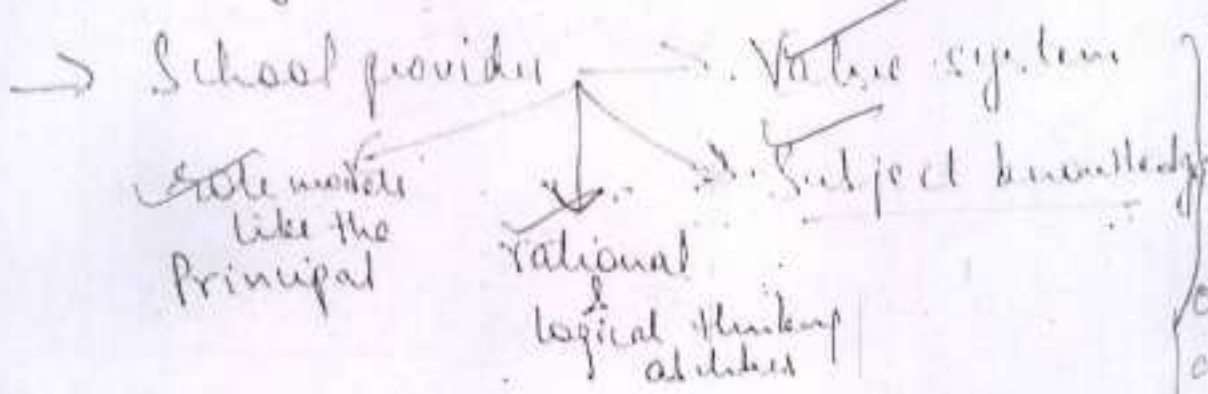 → School provides → Value system
→ Subject knowledge
role models
like the
Principal
rational
&
logical thinking
abilities